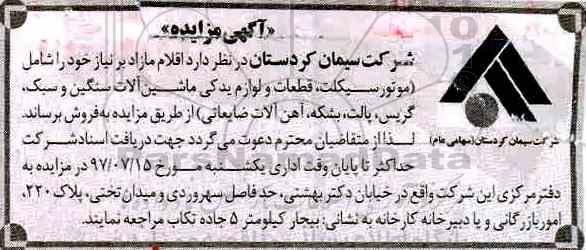 «آگهی مزایده»
شرکت سیمان کردستان در نظر دارد اقلام مازاد بر نیاز خود را شامل
(موتورسیکلت، قطعات و لوازم یدکی ماشین آلات سنگین و سبک،
گریس، پالت، بشکه، آهن آلات ضایعاتی) از طریق مزایده به فروش برساند.
لذا از متقاضیان محترم دعوت می گردد جهت دریافت اسناد شرکت
حداکثر تا پایان وقت اداری یکشنبه مورخ ۹۷/۰۷/۱۵ در مزایده به
دفتر مرکزی این شرکت واقع در خیابان دکتر بهشتی، حد فاصل سهروردی و میدان تختی، پلاک ۲۲۰،
امور بازرگانی و یا دبیرخانه کارخانه به نشانی: بیجار کیلومتر ۵ جاده تکاب مراجعه نمایند.
شرکت سیمان کردستان (سهامی عام)